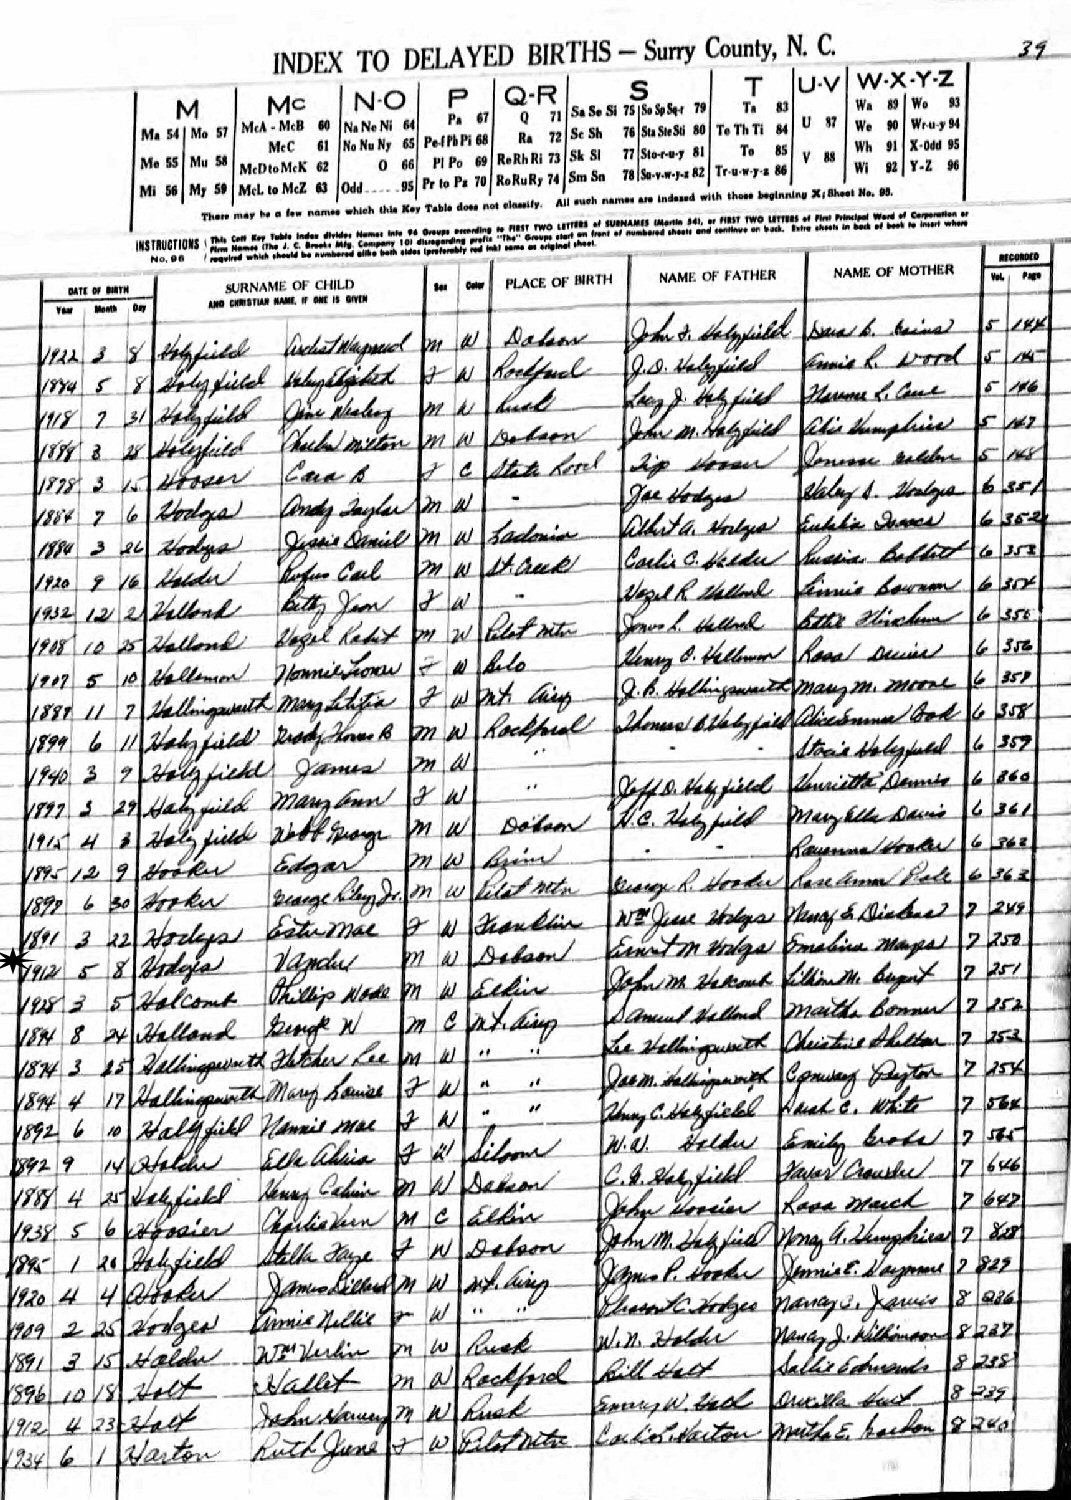 39
INDEX TO DELAYED BIRTHS — Surry County, N. C.
M Mc N-O P Q-R S T U-V W-X-Y-Z
Ma 54 Mo 57 McA - McB 60 Na Ne Ni 64 Pa 67 Q 71 Sa Se Si 75 So Sp Sq-r 79 Ta 83 U 87 Wa 89 Wo 93
Me 55 Mu 58 McC 61 No Nu Ny 65 Pe-f Ph Pi 68 Ra 72 Sc Sh 76 Sta Ste Sti 80 Te Th Ti 84 V 88 We 90 Wr-u-y 94
Mi 56 My 59 McD to McK 62 O 66 Pl Po 69 Re Rh Ri 73 Sk Sl 77 Sto-r-u-y 81 To 85 Wh 91 X-Odd 95
McL to McZ 63 Odd.....95 Pr to Pz 70 Ro Ru Ry 74 Sm Sn 78 Su-v-w-y-z 82 Tr-u-w-y-z 86 Wi 92 Y-Z 96
There may be a few names which this Key Table does not classify. All such names are indexed with those beginning X; Sheet No. 95.
INSTRUCTIONS No. 96 This Cott Key Table Index divides Names into 96 Groups according to FIRST TWO LETTERS of SURNAMES (Martin 54), or FIRST TWO LETTERS of First Principal Word of Corporation or
Firm Names (The J. C. Brooks Mfg. Company 10) disregarding prefix "The" Groups start on front of numbered sheets and continue on back. Extra sheets in back of book to insert where
required which should be numbered alike both sides (preferably red ink) same as original sheet.
DATE OF BIRTH SURNAME OF CHILD AND CHRISTIAN NAME, IF ONE IS GIVEN Sex Color PLACE OF BIRTH NAME OF FATHER NAME OF MOTHER RECORDED
Year Month Day Vol. Page
1922 3 8 Holyfield M W Dobson John F. Holyfield 5 144
1884 5 8 Holyfield F W Rockford J. D. Holyfield Annie L. Wood 5 145
1918 7 31 Holyfield M W Rusk Lacy J. Holyfield Florence L. 5 146
1888 3 28 Holyfield Charlie Milton M W Dobson John M. Holyfield Humphries 5 147
1878 3 15 Hooser Cara B F C State Road Tip Hooser 5 148
1884 7 6 Hodges Andy Taylor M W " Joe Hodges Hodges 6 351
1884 3 26 Hodges Jessie Daniel M W Ladonia Albert A. Hodges 6 352
1920 9 16 Holder Rufus Carl M W St. Creek Carlie C. Holder Russia 6 353
1932 12 2 Holland Betty Jean F W " Hazel R Holland Bowman 6 354
1908 10 25 Holland M W Pilot Mtn Jones L. Holland 6 355
1907 5 10 Hollemon F W Henry C. Hollemon Rosa 6 356
1889 11 7 Hollingsworth Mary Letitia F W Mt. Airy J. B. Hollingsworth Mary M. Moore 6 357
1899 6 11 Holyfield Thomas B M W Rockford Thomas B. Holyfield Alice Emma 6 358
1940 3 9 Holyfield James M W " - - Holyfield 6 359
1897 3 29 Holyfield Mary Ann F W " Jeff D. Holyfield Henrietta 6 360
1915 4 3 Holyfield Webb George M W Dobson Holyfield Mary Ella Davis 6 361
1895 12 9 Hooker Edgar M W Brim - - Ravenna Hooker 6 362
1898 6 30 Hooker George Jr. M W Pilot Mtn George R. Hooker Rose Anna 6 363
1891 3 22 Hodges Ester Mae F W Franklin Wm Jesse Hodges Nancy E. 7 249
1912 5 8 Hodges M W Dobson Ernest M Hodges Emaline 7 250
1928 3 5 Holcomb Phillip Wade M W Elkin John M. Holcomb Lillian M. 7 251
1891 8 24 Holland George W M C Mt. Airy Samuel Holland Martha Bonner 7 252
1874 3 25 Hollingsworth Fletcher Lee M W " " Lee Hollingsworth Christine Shelton 7 253
1894 4 17 Hollingsworth Mary Louise F W " " Joe M. Hollingsworth 7 254
1892 6 10 Holyfield Nannie Mae F W " " Henry C. Holyfield Sarah C. White 7 564
1892 9 14 Holder Ella F W Siloam W. W. Holder Emily 7 565
1888 4 25 Holyfield Henry Calvin M W Dobson Holyfield 7 646
1938 5 6 Hoosier Charlie Vern M C Elkin John Hoosier Rosa March 7 647
1895 1 20 Holyfield Stella Faye F W Dobson John M. Holyfield Nancy A. Humphries 7 828
1920 4 4 Hooker James Dillard M W Mt. Airy James P. Hooker Jennie E. 7 829
1909 2 25 Hodges Annie Nellie F W " " C. Hodges Nancy C. Jarvis 8 236
1891 3 15 Holder Wm Verlin M W Rusk W. N. Holder Nancy J. Wilkinson 8 237
1896 10 18 Holt Hallet M W Rockford Bill Holt Sallie Edmonds 8 238
1912 4 23 Holt John Harvey M W Rusk Emery W. Druscilla 8 239
1934 6 1 Horton Ruth June F W Pilot Mtn Horton E. 8 240